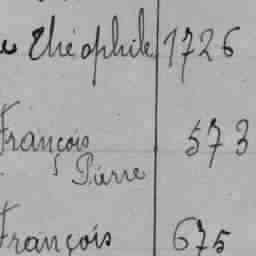 Théophile 1726
François 573
Pierre
François 675